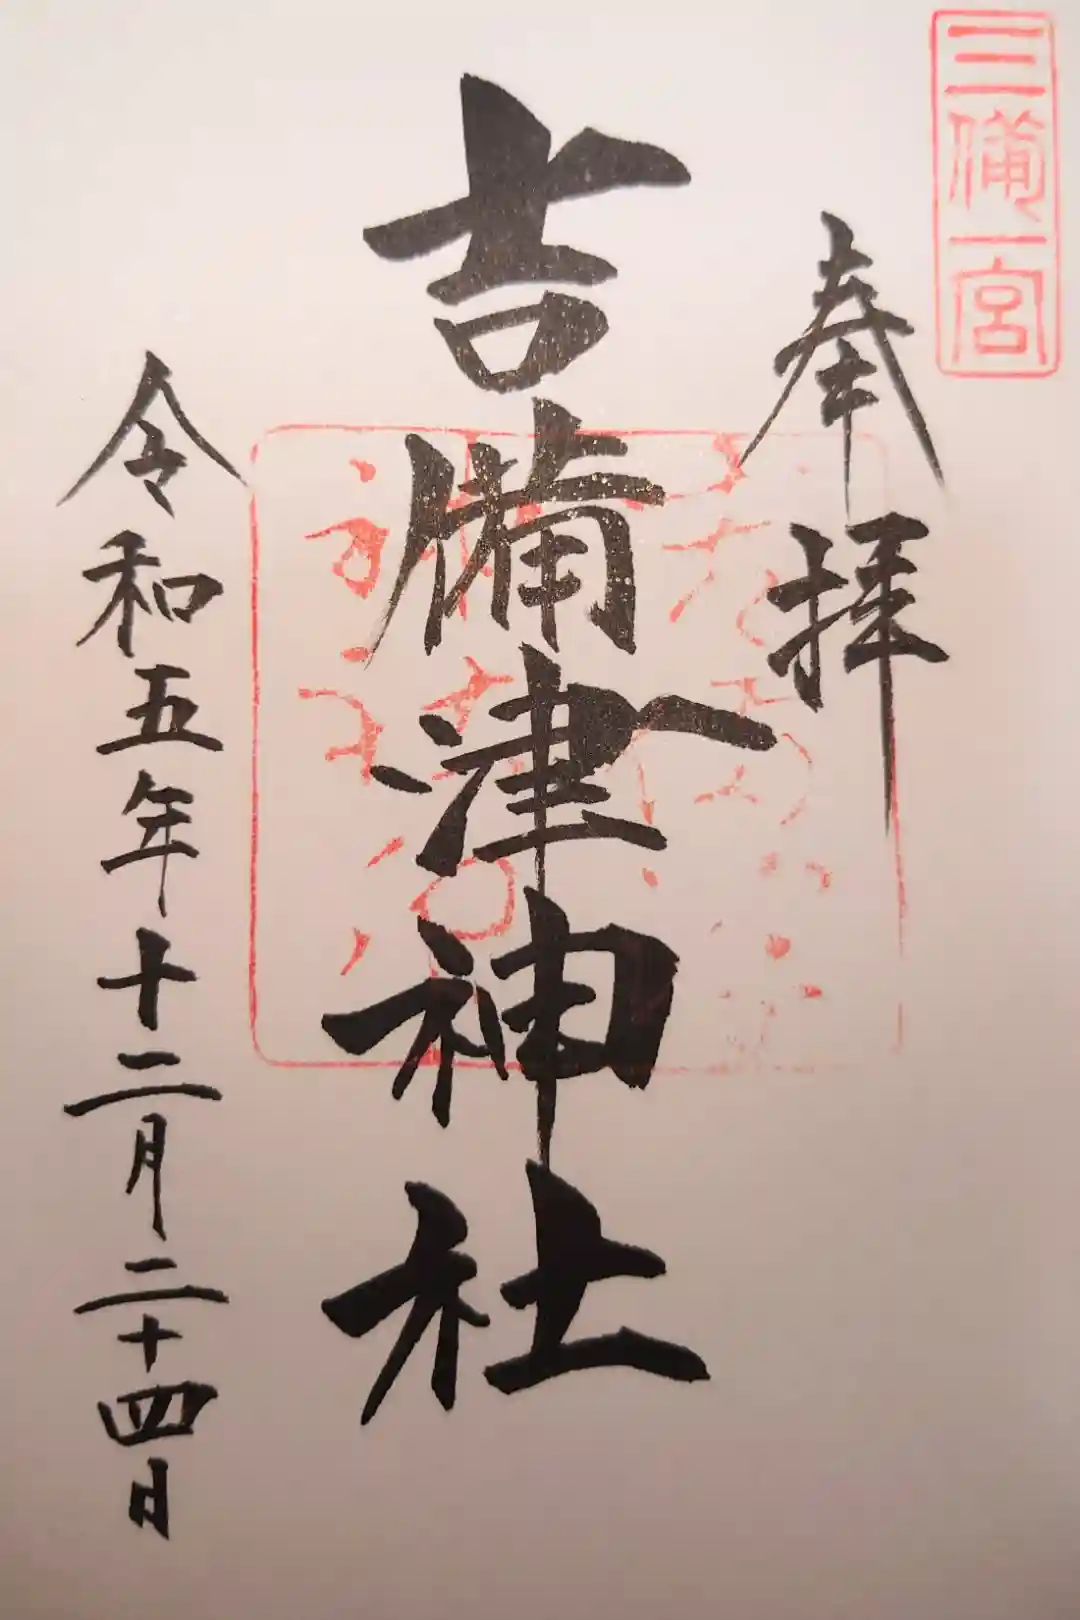 三備一宮
奉拝
吉備津神社
令和五年十二月二十四日